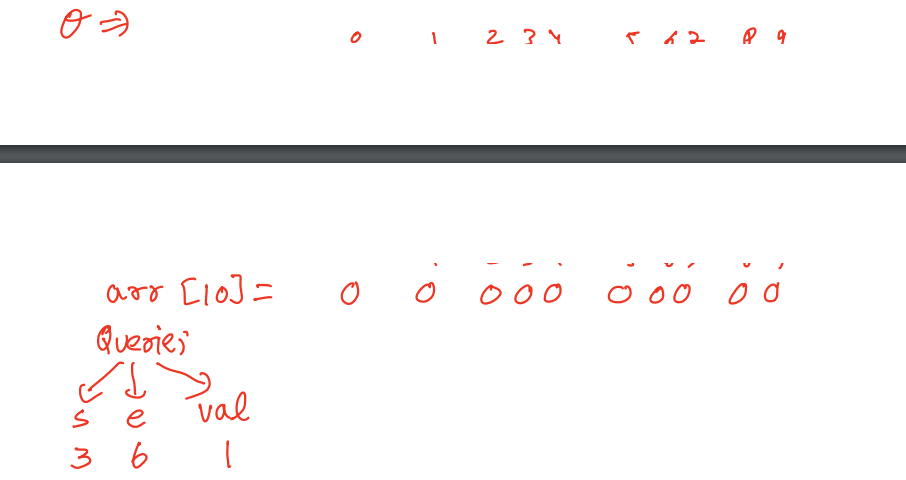 θ ⇒
0 1 2 3 4 5 6 7 8 9
arr [10] = 0 0 0 0 0 0 0 0 0 0
Queries
s e val
3 6 1